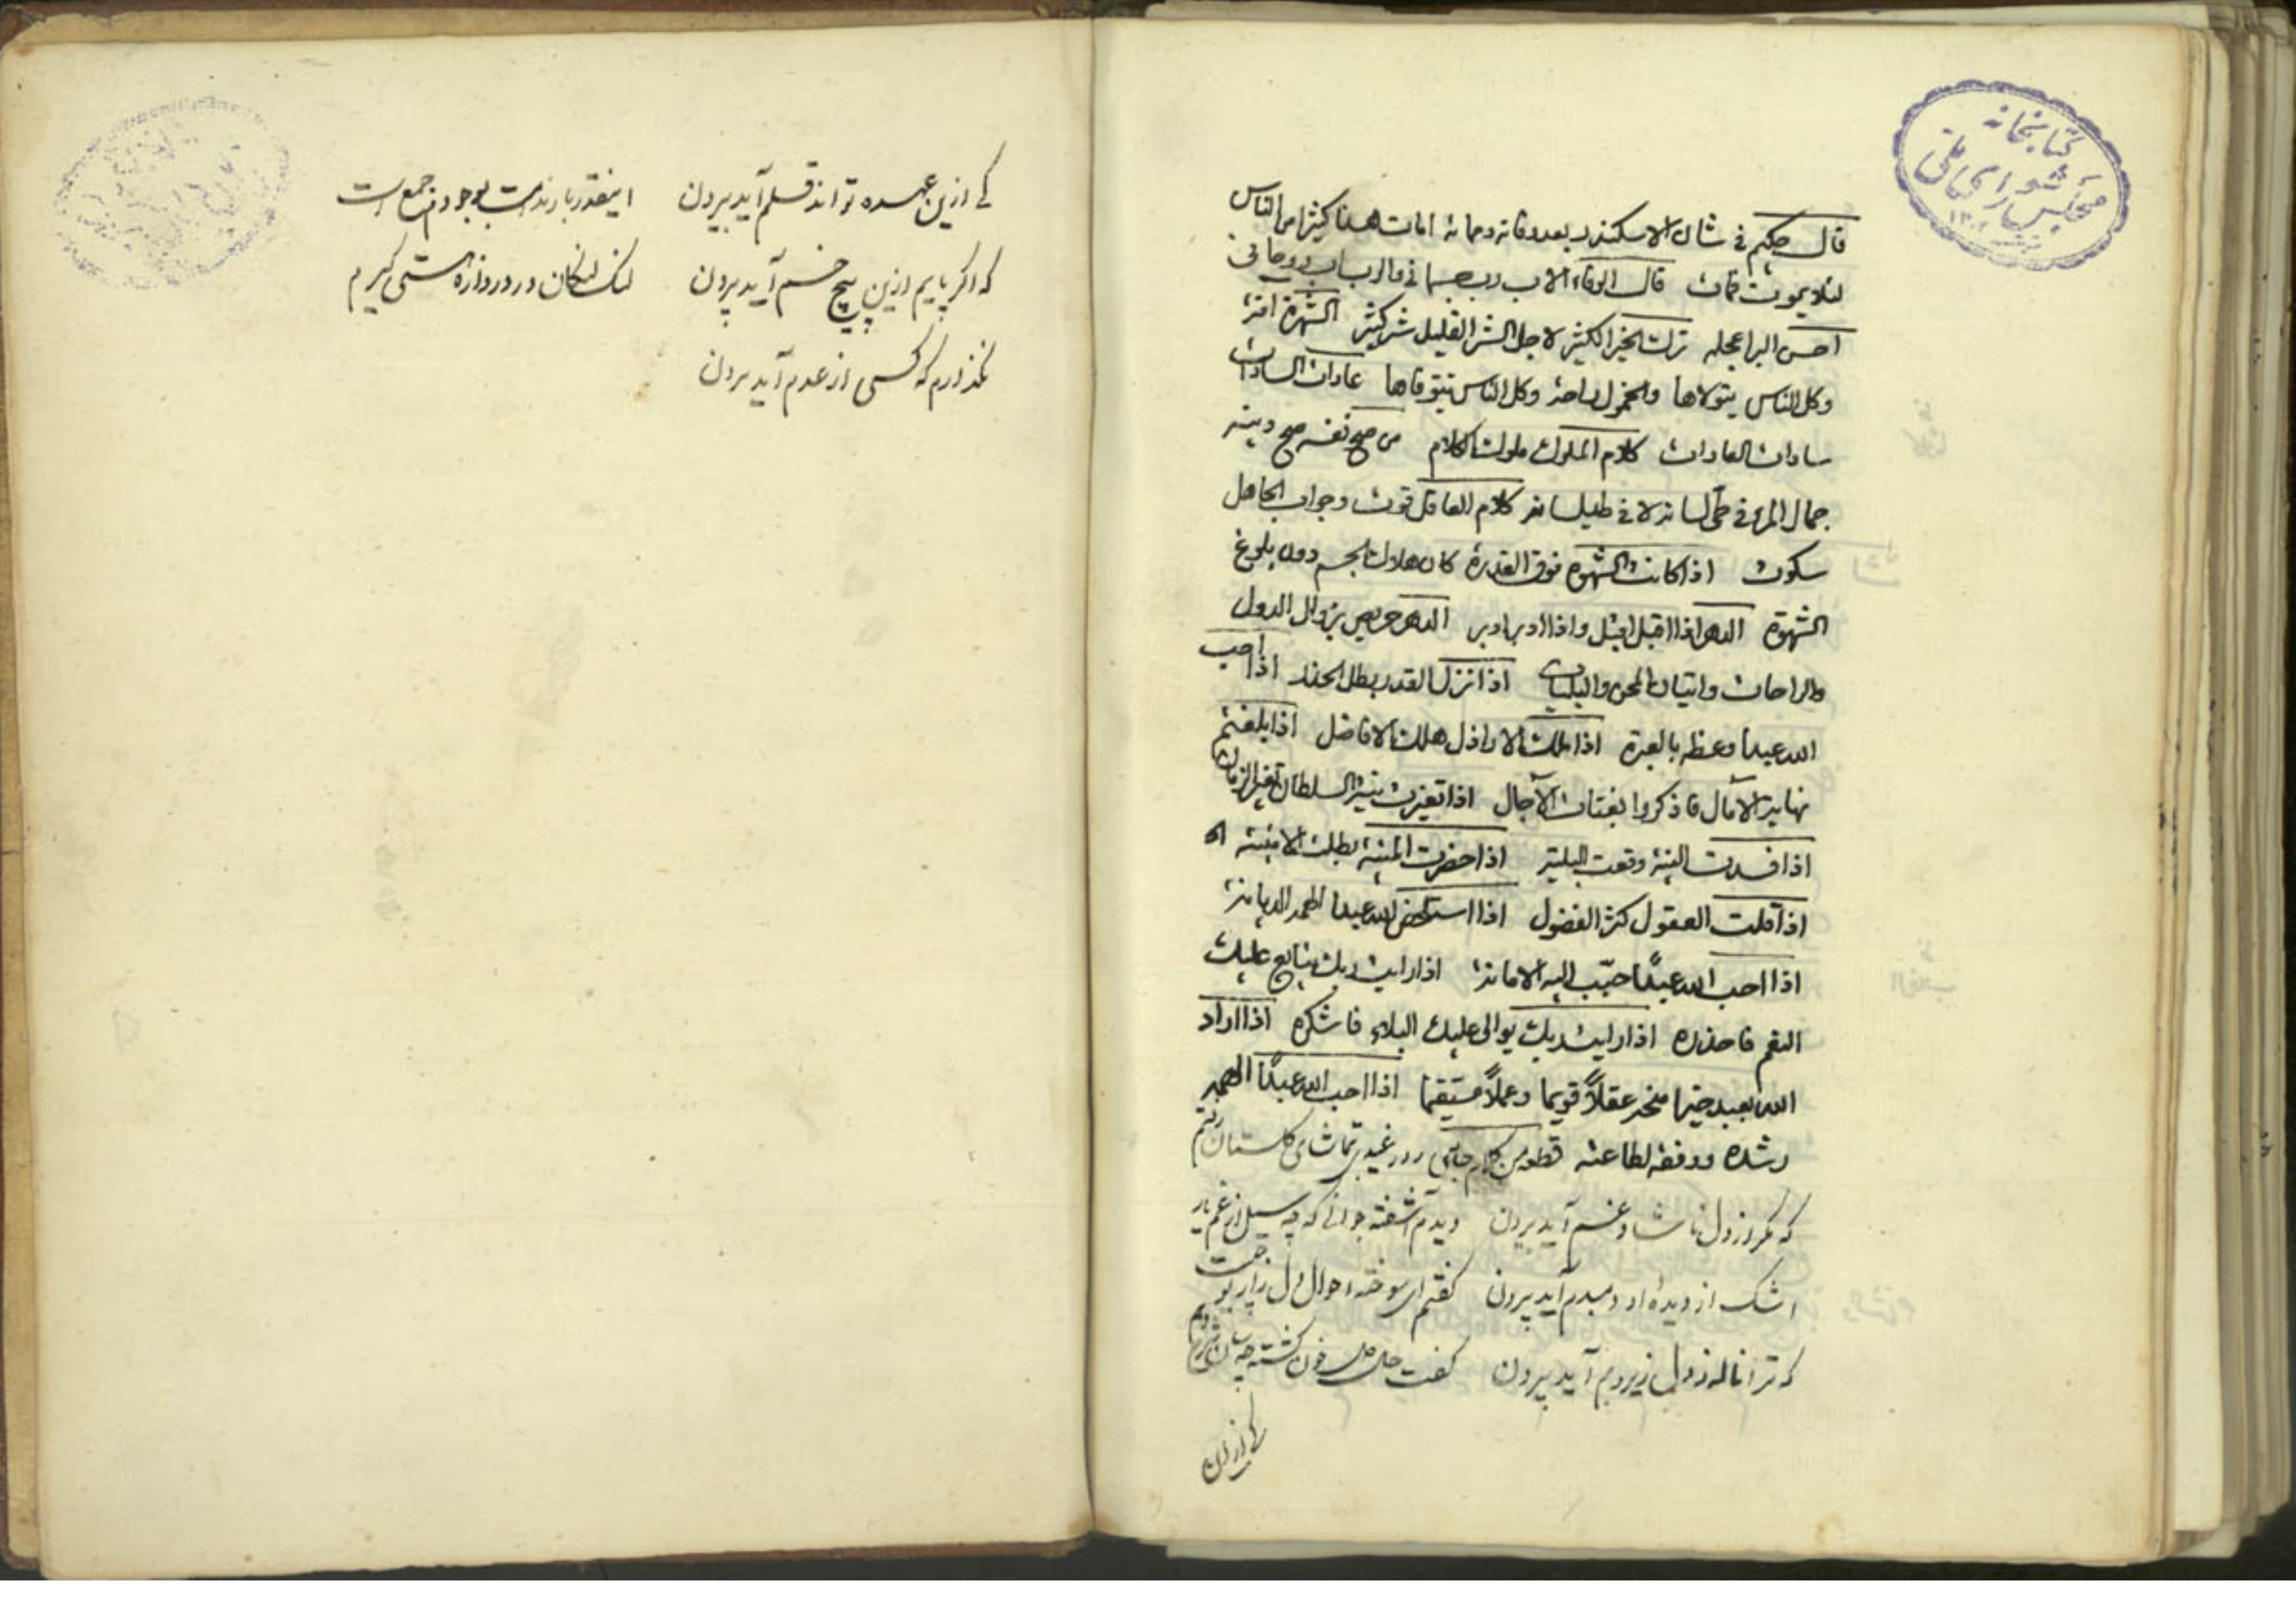 کتابخانه
مجلس شورای ملی
قال حکیم فی شان الاسکندر بعد وفاته و مماته امات هذا کثیرا من الناس
لئلا یموت فمات قال الوفاء الاب رب جسمانی والرب اب روحانی
احسن البر اعجله ترک الخیر الکثیر لاجل الشر القلیل شر کثیر الشهرة افة
وکل الناس یتولاها والخمول راحة وکل الناس یتوقاها عادات السادات
سادات العادات کلام الملوک ملوک الکلام من صح نفسه صح دینه
جمال المرء فی طی لسانه لا فی طیلسانه کلام العاقل قوت وجواب الجاهل
سکوت اذا کانت الشهوة فوق القدرة کان هلاک الجسم دون بلوغ
الشهوة الدهر اذا اقبل اقبل واذا ادبر ادبر الدهر حریص بزوال الدول
والراحات واتیان المحن والبلیات اذا نزل القدر بطل الحذر اذا احب
الله عبدا وعظه بالعبرة اذا ملک الاراذل هلک الافاضل اذا بلغتم
نهایة الآمال فاذکروا بغتات الآجال اذا تغیرت نیة السلطان تغیر الزمان
اذا فسدت النیة وقعت البلیة اذا حضرت المنیة بطلت الامنیة
اذا قلت العقول کثر الفضول اذا استخلص الله عبدا الهمه الدیانة
اذا احب الله عبدًا حبّب الیه الامانة اذا رایت ربک یتابع علیک
النعم فاحذره اذا رایت ربک یوالی علیک البلاء فاشکره اذا اراد
الله بعبد خیرا منحه عقلاً قویما وعملاً مستقیما اذا احب الله عبدًا الهمه
رشده ووفقه لطاعته قطعه من کلام روز عید تماشای گلستان رفتم
که مگر از دل ناشاد غم آید بیرون دیدم آشفته جوانی که چه سیل از غم یار
اشک از دیده او دمبدم آید بیرون گفتم ای سوخته احوال دل زار بو چیست
که ترا ناله ز دل زیر و بم آید بیرون گفت حال دل خون گشته چه سان شرح دهم
کی ازین
کی ازین عهده تواند قلم آید بیرون اینقدر بار ندامت بوجودم جمع است
که اگر پایم ازین پیچ و خم آید بیرون لنگ لنگان در دروازه هستی گیرم
نگذارم که کسی از عدم آید بیرون